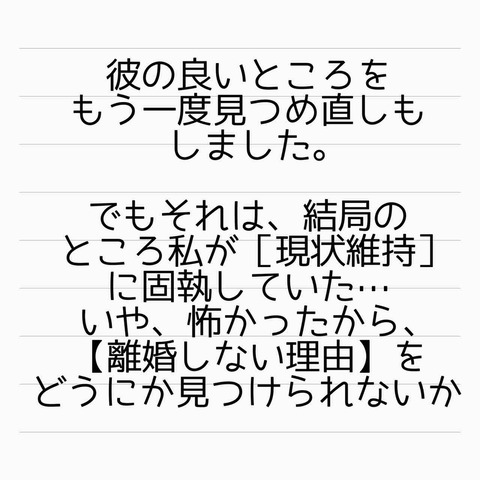 彼の良いところを
もう一度見つめ直しも
しました。
でもそれは、結局の
ところ私が［現状維持］
に固執していた…
いや、怖かったから、
【離婚しない理由】を
どうにか見つけられないか